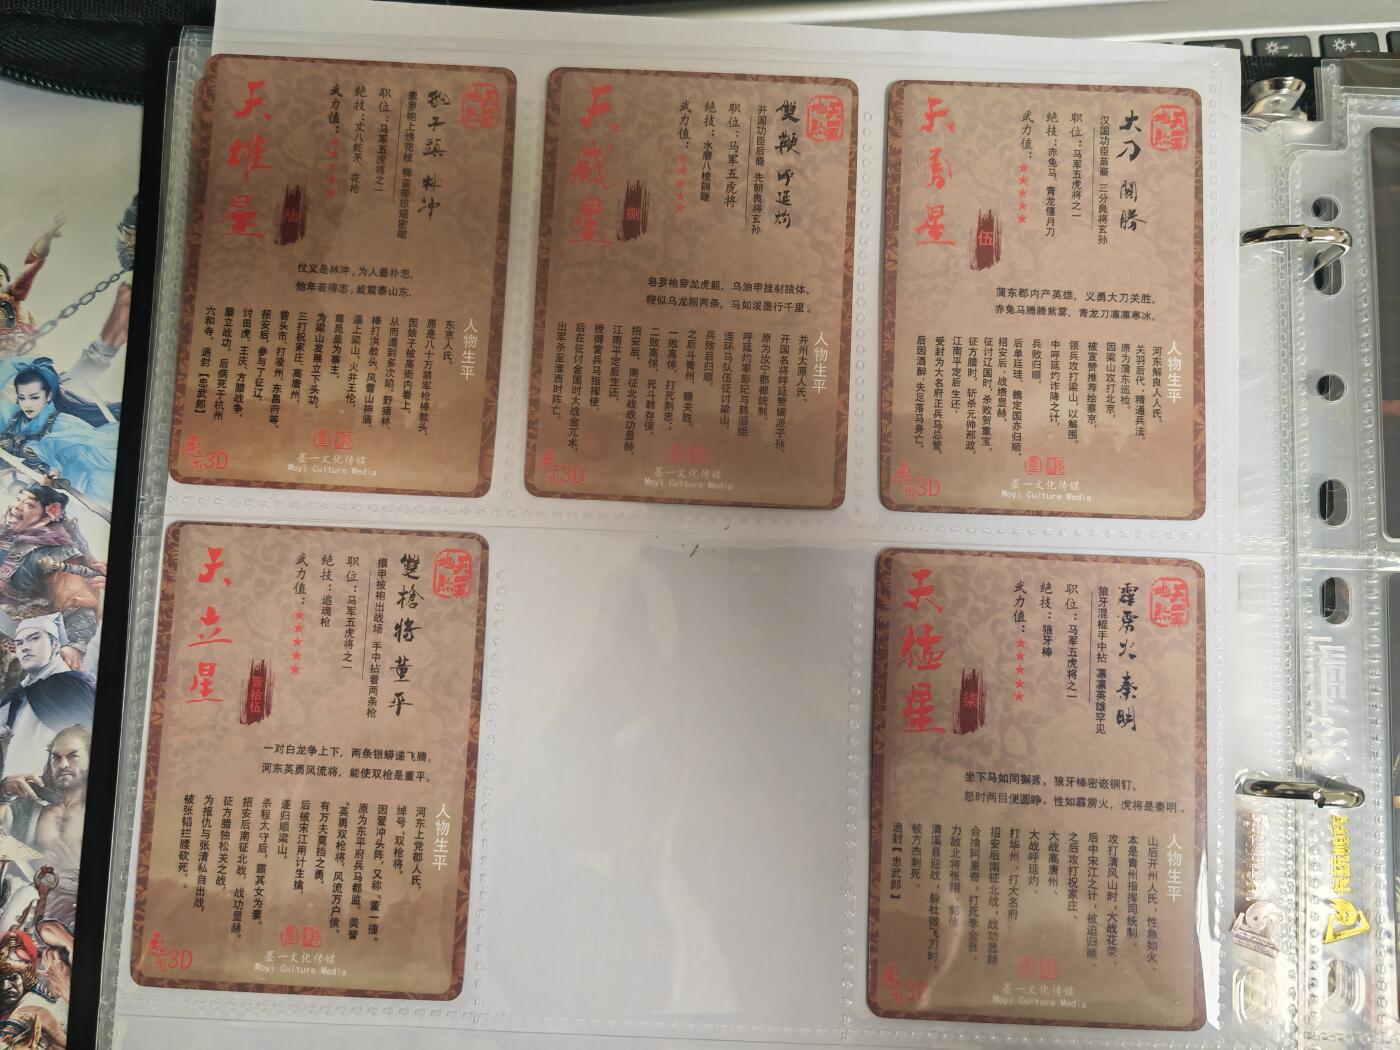 天罡
地煞
豹子头 林冲
素罗袍上绣花枝
职位：马军五虎将之一
绝技：丈八蛇矛、花枪
武力值：★★★★★
天雄星
陆
仗义是林冲，为人最朴忠.
他年若得志，威震泰山东.
人物生平
东京人氏、
原是八十万禁军枪棒教头、
因娘子被高衙内看上，
从而遭到多次陷、野猪林、
棒打洪教头、风雪山神庙、
逼上梁山、火并王伦，
尊晁盖为寨主，
为梁山发展立下头功。
三打祝家庄、高唐州、
曾头市、打凌州、东昌府等。
招安后，参与了征辽、
讨田虎、王庆、方腊战争，
屡立战功。后病死于杭州
六和寺。追封【忠武郎】
3D
墨一文化传媒
Moyi Culture Media
天罡
地煞
雙鞭 呼延灼
开国功臣后裔 先朝良将玄孙
职位：马军五虎将
绝技：水磨八棱钢鞭
武力值：★★★★
天威星
捌
皂罗袍穿龙虎躯，乌油甲挂豺狼体。
鞭似乌龙搦两条，马如泼墨行千里。
人物生平
并州太原人氏、
开国名将呼延赞嫡派子孙、
原为汝宁郡都统制、
呼延灼率彭玘与韩滔组
连环马队伍征讨梁山，
兵败后归顺。
之后斗青州、赚关胜。
一败高俅，打死荆忠，
二败高俅，死斗韩存保。
招安后，南征北战战功显赫，
江南平定后生还，
授御营兵马指挥使，
后在征讨金国时大战金兀术，
出军杀至淮西时阵亡。
3D
墨一文化传媒
Moyi Culture Media
天罡
地煞
大刀 関勝
汉国功臣苗裔 三分良将玄孙
职位：马军五虎将之一
绝技：赤兔马、青龙偃月刀
武力值：★★★★★
天勇星
伍
蒲东郡内产英雄，义勇大刀关胜。
赤兔马腾腾紫雾，青龙刀凛凛寒冰。
人物生平
河东解良人人氏、
关羽后代，精通兵法、
原为蒲东巡检。
因梁山攻打北京，
被宣赞推荐给蔡京，
领兵攻打梁山，以解围。
中呼延灼诈降之计，
兵败归顺。
后单廷珪、魏定国亦归顺。
招安后，战绩显赫。
征讨辽国时，杀败贺重宝。
征方腊时，斩杀元帅邢政。
江南平定后生还，
受封为大名府正兵马总管。
后因酒醉，失足落马身亡。
3D
墨一文化传媒
Moyi Culture Media
天罡
地煞
雙槍将 董平
擐甲披袍出战场 手中拈着两条枪
职位：马军五虎将之一
绝技：追魂枪
武力值：★★★★★
天立星
壹拾伍
一对白龙争上下，两条银蟒递飞腾。
河东英勇风流将，能使双枪是董平。
人物生平
河东上党郡人氏，
绰号、双枪将。
因爱冲头阵，又称、董一撞。
原为东平府兵马都监。美誉
“英勇双枪将，风流万户侯。
有万夫莫挡之勇。
后被宋江用计生擒，
遂归顺梁山。
杀程太守后，霸其女为妻。
招安后南征北战，战功显赫。
征方腊独松关之战，
为报仇与张清私自出战，
被张韬拦腰砍死。
3D
墨一文化传媒
Moyi Culture Media
天罡
地煞
霹雳火 秦明
狼牙混棍手中拈 凛凛英雄罕见
职位：马军五虎将之一
绝技：狼牙棒
武力值：★★★★★
天猛星
柒
坐下马如同獬豸，狼牙棒密嵌铜钉，
怒时两目便圆睁。性如霹雳火，虎将是秦明。
人物生平
山后开州人氏，性急如火。
本是青州指挥司统制。
攻打清风山时，大战花荣，
后中宋江之计，被迫归顺。
之后攻打祝家庄、
大战高唐州、
大战呼延灼
打华州、打大名府
招安后南征北战，战功显赫
合擒阿里奇，打死李金吾，
力敌北将张翔、郭信
清溪县迎战，躲杜微飞刀时，
被方杰刺死。
追封【忠武郎】
3D
墨一文化传媒
Moyi Culture Media
卡玩部落